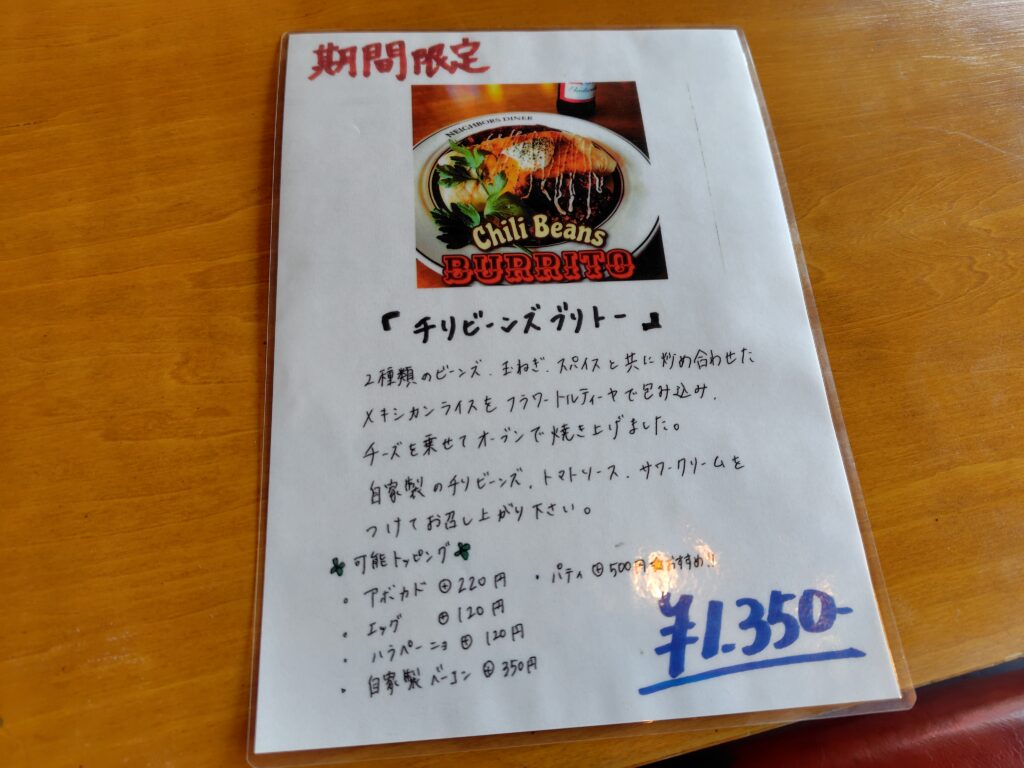 期間限定
NEIGHBORS DINER
Chili Beans
BURRITO
「チリビーンズブリトー」
2種類のビーンズ、玉ねぎ、スパイスと共に炒め合わせた
メキシカンライスをフラワートルティーヤで包み込み、
チーズを乗せてオーブンで焼き上げました。
自家製のチリビーンズ、トマトソース、サワークリームを
つけてお召し上がり下さい。
可能トッピング
・アボカド ⊕220円
・エッグ ⊕120円
・ハラペーニョ ⊕120円
・自家製ベーコン ⊕350円
・パティ ⊕500円 ★おすすめ!!
¥1.350-